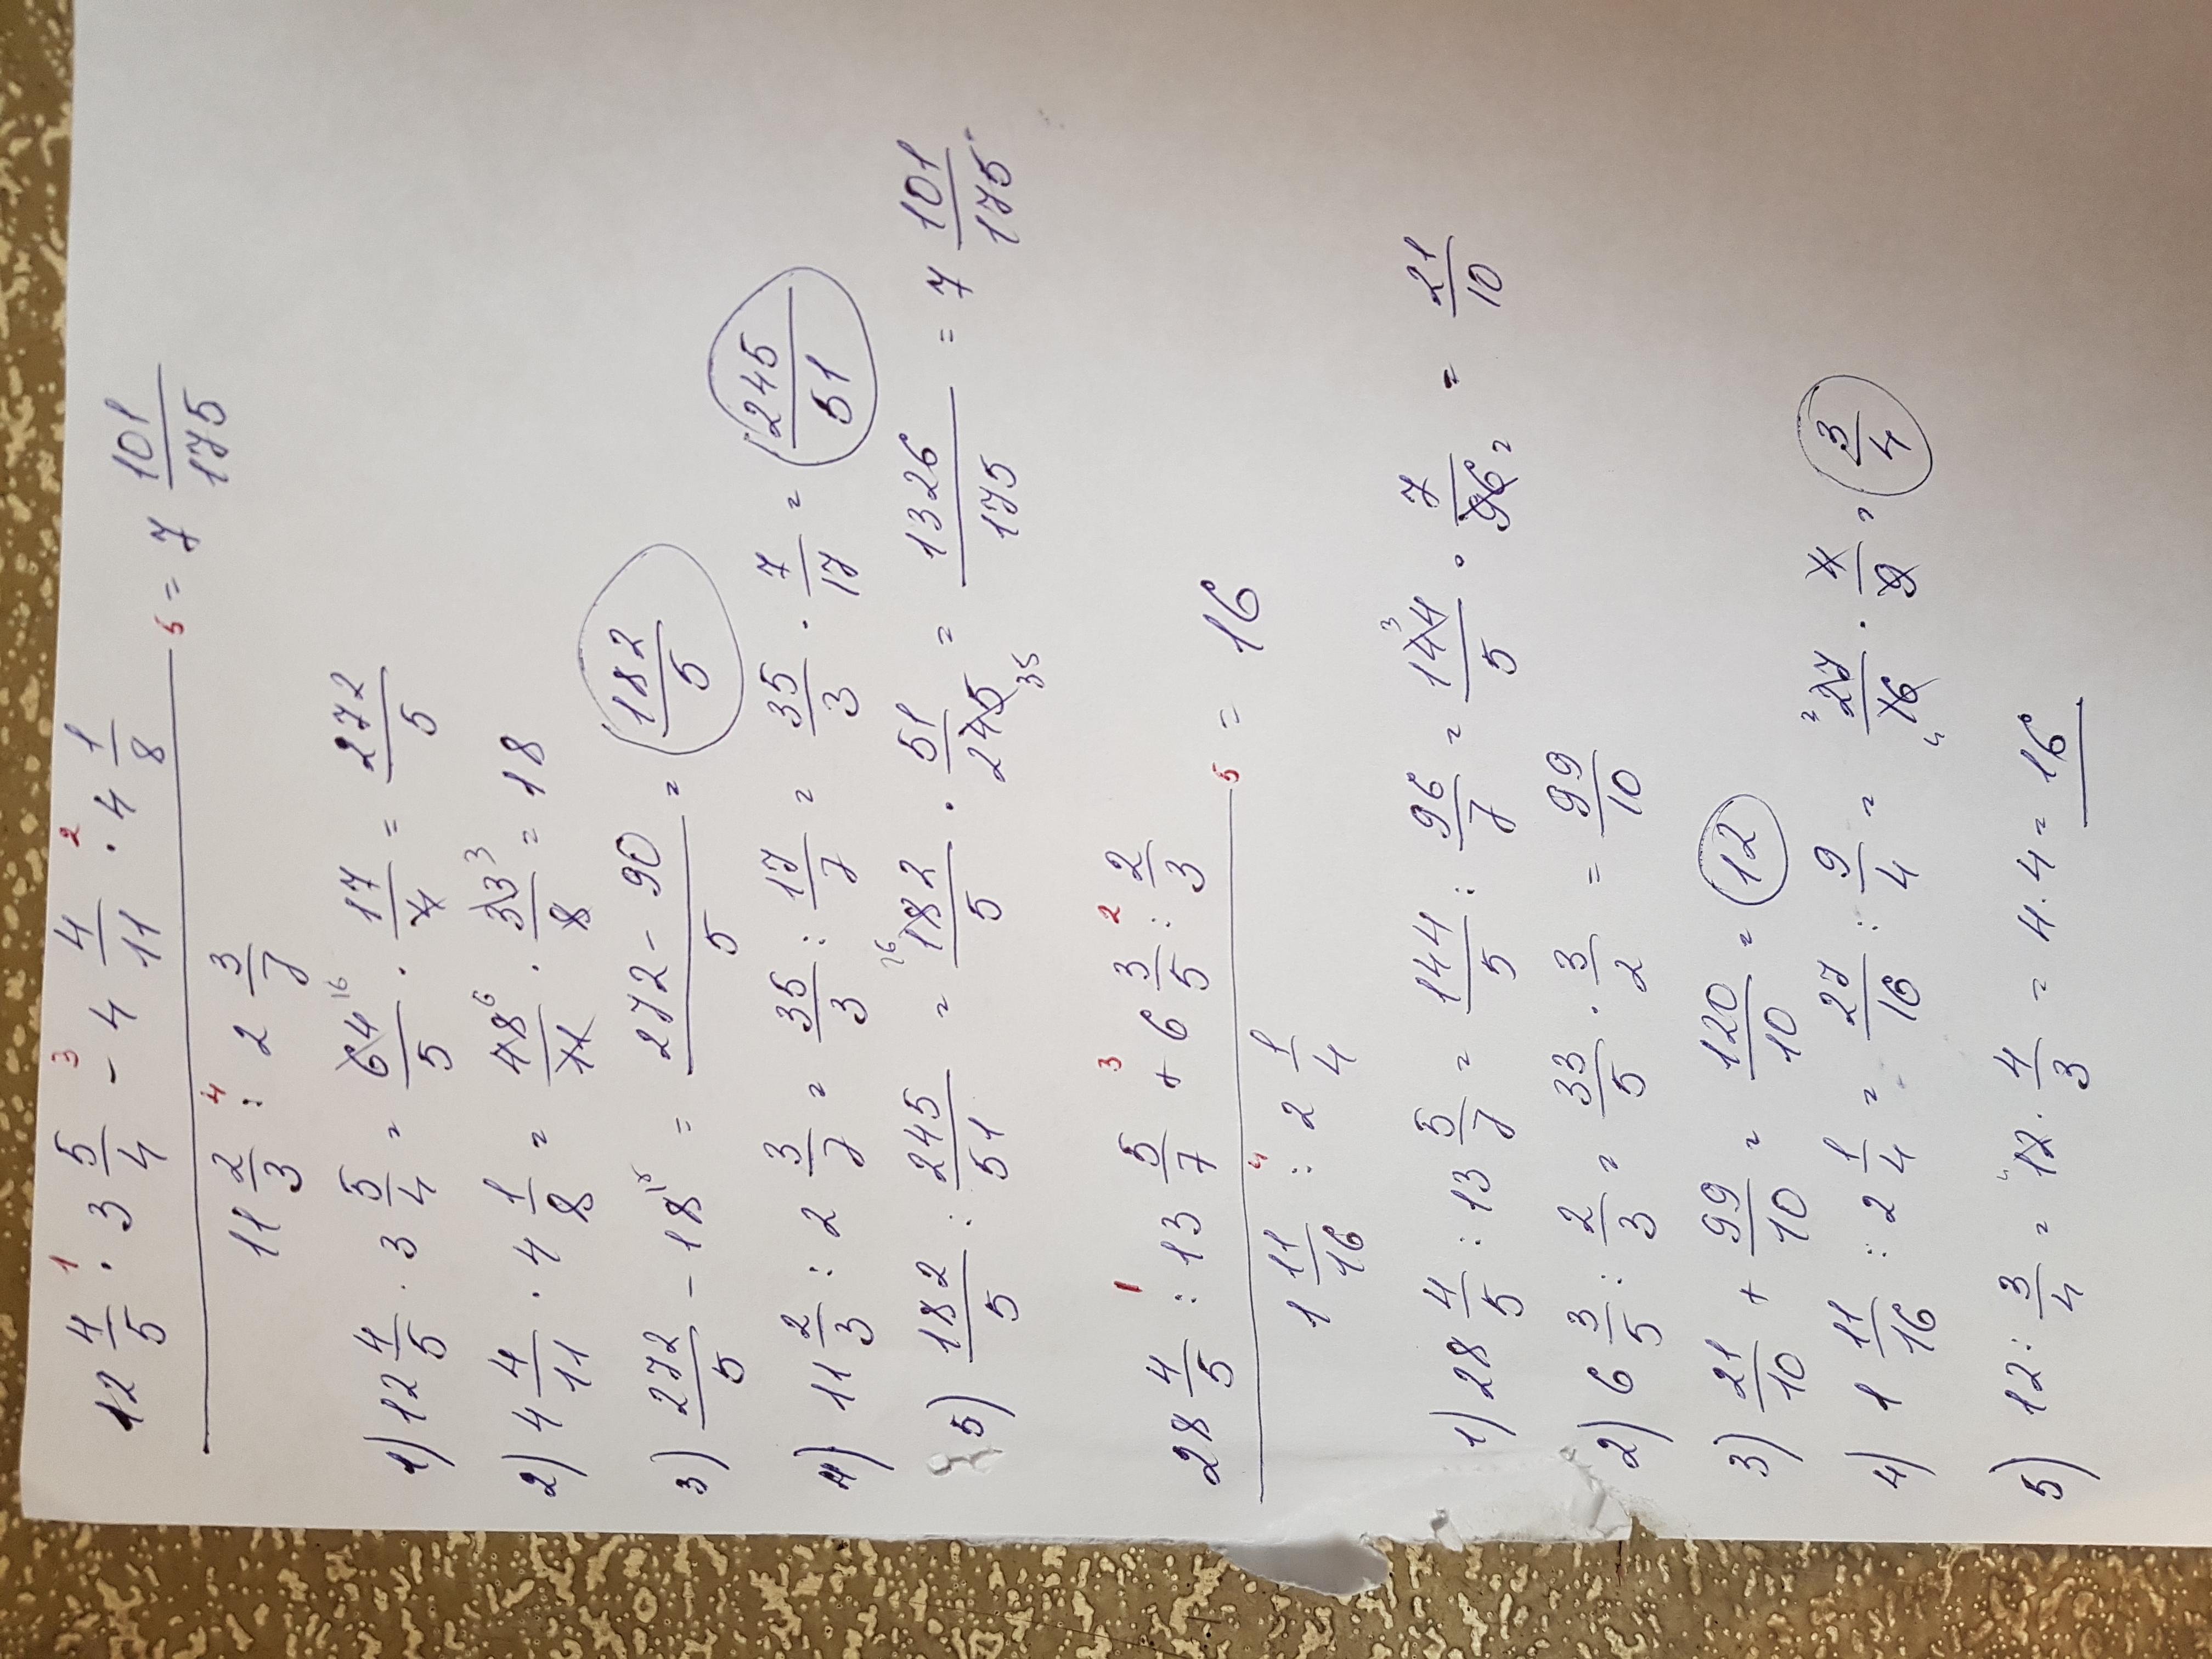 12 4/5 · 3 5/4 - 4 4/11 · 4 1/8 = 7 101/175
1 3 2 5
11 2/3 : 2 3/7
4
1) 12 4/5 · 3 5/4 = 64/5 16 · 17/4 = 272/5
2) 4 4/11 · 4 1/8 = 48/11 6 · 33/8 3 = 18
3) 272/5 - 18 = 272 - 90/5 = 182/5
4) 11 2/3 : 2 3/7 = 35/3 : 17/7 = 35/3 · 7/17 = 245/51
5) 182/5 : 245/51 = 182/5 26 · 51/245 35 = 1326/175 = 7 101/175
28 4/5 : 13 5/7 + 6 3/5 : 2/3 = 16
1 3 2 5
1 11/16 : 2 1/4
4
1) 28 4/5 : 13 5/7 = 144/5 : 96/7 = 144/5 3 · 7/96 2 = 21/10
2) 6 3/5 : 2/3 = 33/5 · 3/2 = 99/10
3) 21/10 + 99/10 = 120/10 = 12
4) 1 11/16 : 2 1/4 = 27/16 : 9/4 = 27/16 4 · 4/9 = 3/4
5) 12 : 3/4 = 12 · 4/3 = 4 · 4 = 16